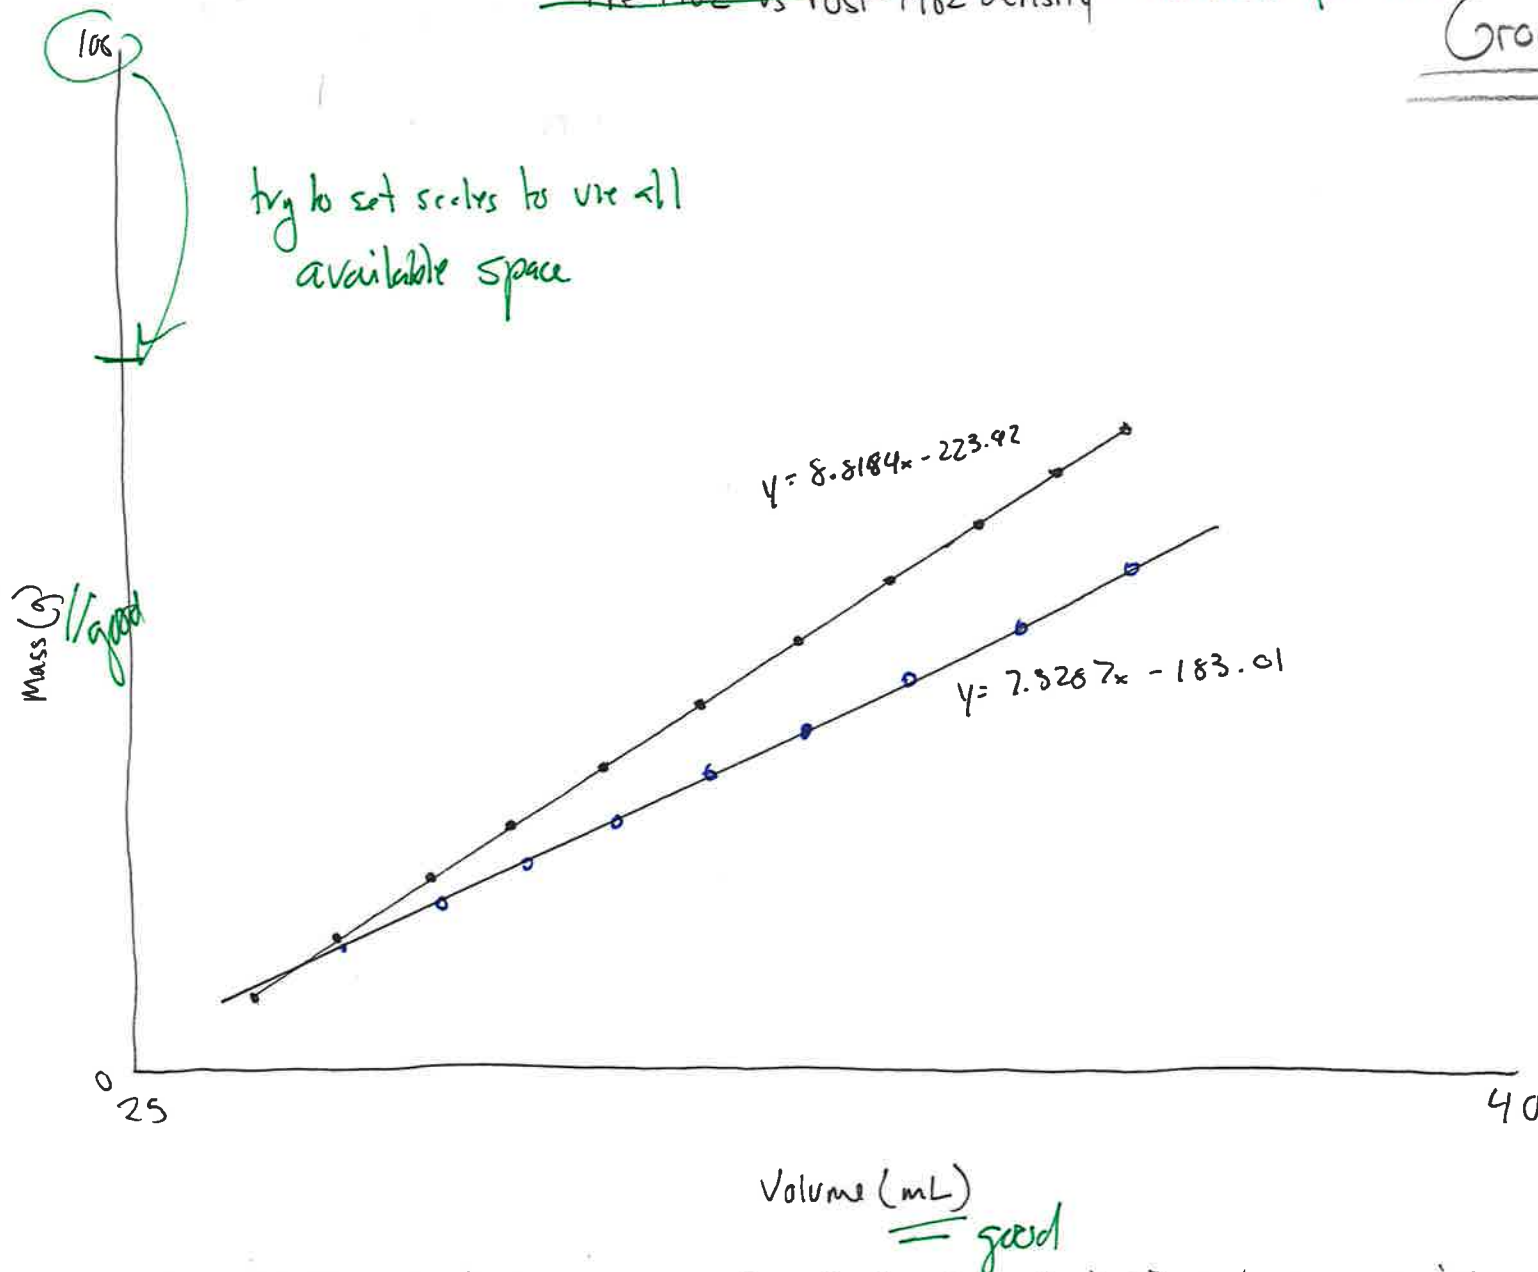 vs Post-1982 density
Gro
100
try to set scales to use all
available space
y = 8.8184x - 223.92
Mass (g)
good
y = 7.3287x - 183.01
0
25
40
Volume (mL)
good